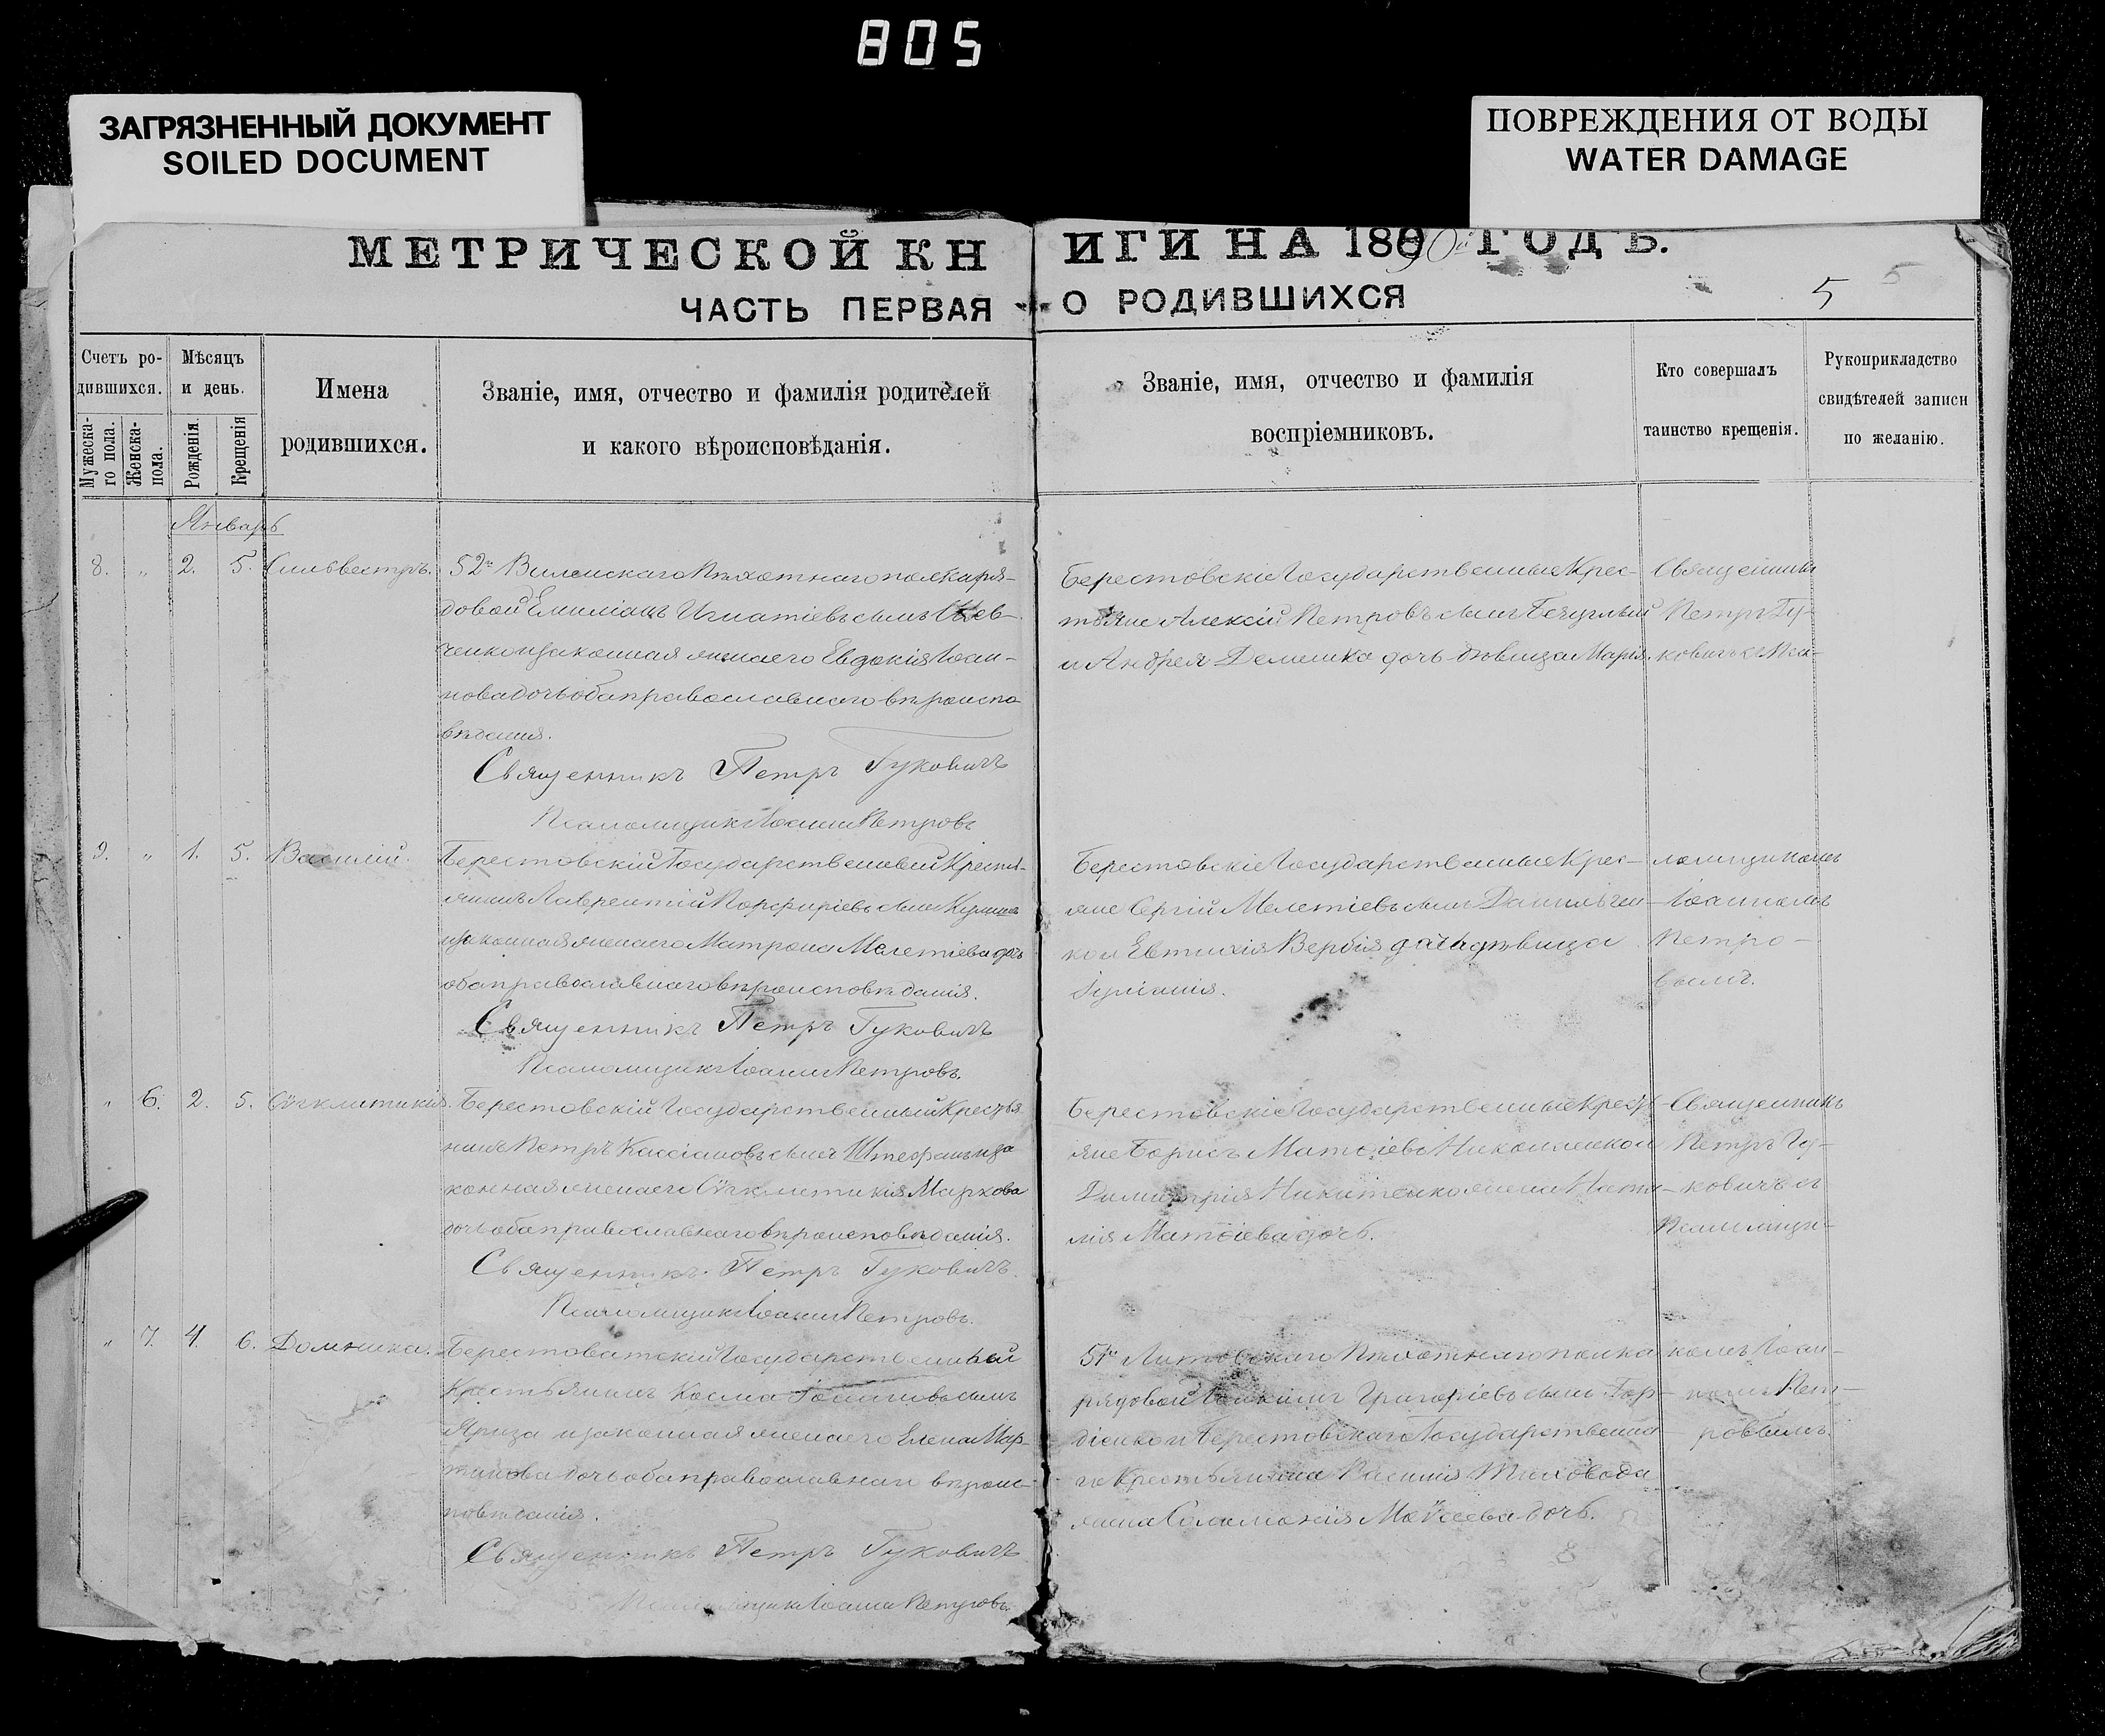 805
ЗАГРЯЗНЕННЫЙ ДОКУМЕНТ
SOILED DOCUMENT
ПОВРЕЖДЕНИЯ ОТ ВОДЫ
WATER DAMAGE
МЕТРИЧЕСКОЙ КНИГИ НА 1890й ГОДЪ.
ЧАСТЬ ПЕРВАЯ О РОДИВШИХСЯ
5 5
Счетъ ро-
дившихся.
Мужеска-
го пола.
Женска-
пола.
Мѣсяцъ
и день.
Рожденія.
Крещенія
Имена
родившихся.
Званіе, имя, отчество и фамилія родителей
и какого вѣроисповѣданія.
Званіе, имя, отчество и фамилія
воспріемниковъ.
Кто совершалъ
таинство крещенія.
Рукоприкладство
свидѣтелей записи
по желанію.
Январь
8. „ 2. 5. Сильвестръ.
52го Виленскаго Пѣхотнаго полка ря-
довой Емиліанъ Игнатіевъ сынъ Шев-
ченко и законная жена его Евдокія Іоан-
нова дочь оба православнаго вѣроиспо
вѣданія.
Священникъ Петръ Гуковичъ
Псаломщикъ Іоаннъ Петровъ
Берестовскіе Государственные Крес-
тьяне Алексій Петровъ сынъ
и Андрея Демешка дочь дѣвица Марія.
Священникъ
Петръ Гу-
ковичъ съ Пса-
9. „ 1. 5. Василій.
Берестовскій Государственный Крестья-
нинъ Лаврентій Порфиріевъ сынъ
и законная жена его Матрона Мелетіева дочь
оба православнаго вѣроисповѣданія.
Священникъ Петръ Гуковичъ
Псаломщикъ Іоаннъ Петровъ.
Берестовскіе Государственные Крес-
яне Сергій Мелетіевъ сынъ Данильчен-
ко и Евтихія Вербія дочь дѣвица
Іуліанія.
ломщикомъ
Іоанномъ
Петро-
вымъ.
„ 6. 2. 5. Сѵнклитикія.
Берестовскій Государственный Крестья
нинъ Петръ Кассіановъ сынъ Штефанъ и за
конная жена его Сѵнклитикія Маркова
дочь оба православнаго вѣроисповѣданія.
Священникъ Петръ Гуковичъ
Псаломщикъ Іоаннъ Петровъ.
Берестовскіе Государственные Кресть-
яне Борисъ Матѳіевъ Николенко и
Димитрія Никитенко жена Ната-
лія Матѳіева дочь.
Священникъ
Петръ Гу-
ковичъ съ
Псаломщи-
„ 7. 4. 6. Домника.
Государственный
Крестьянинъ Косма Іоанновъ сынъ
и законная жена его Елена Мар-
тинова дочь оба православнаго вѣроис-
повѣданія.
Священникъ Петръ Гуковичъ
Псаломщикъ Іоаннъ Петровъ.
51го Литовскаго Пѣхотнаго полка
рядовой Григоріевъ сынъ Гор-
діенко и Берестовскаго Государственна-
го Крестьянина Василія
жена Саламонія Моѵсеева дочь.
комъ Іоан-
номъ Пет-
ровымъ.